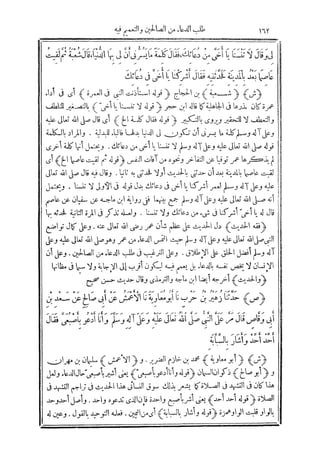 ١٦٢ طلب الدعاء من الصالحين والتعميم فيه
لى وقال لا تنسنا يا أخى من دعائك فقال كلمة ما يسرنى أن لى بها الدنيا، قال شعبة ثم لقيت
عاصما بعد بالمدينة فحدثنيه فقال أشركنا يا أخى فى دعائك
(ش) (شعبة) بن الحجاج (قوله استأذنت النبى فى العمرة) أى فى أداء
عمرة كان نذرها فى الجاهلية كما قاله ابن حجر (قوله لا تنسنا يا أخى) بالتصغير للتلطف
والتعطف لا للتحقير ويروى بالتكبير (قوله فقال كلمة الخ) أى قال صلى الله تعالى عليه
وعلى آله وسلم كلمة ما يسرنى أن تكون لى الدنيا بدلها فالباء للبدلية. والمراد بالكلمة
قوله صلى الله تعالى عليه وعلى آله وسلم لا تنسنا يا أخى من دعائك. ويحتمل أنها كلمة أخرى
لم يذكرها عمر توقيا عن التفاخر ونحوه من آفات النفس (قوله ثم لقيت عاصما الخ) أى
لقيت عاصما بالمدينة بعد أن حدثنى بالحديث أولا لحدثنى به ثانيا. وقال فيه قال صلى الله تعالى
عليه وعلى آله وسلم لعمر أشركنا يا أخى فى دعائك بدل قوله فى الأولى لا تنسنا. ويحتمل
أنه صلى الله تعالى عليه وعلى آله وسلم جمع بينهما ففى رواية ابن ماجه عن سفيان عن عاصم
قال له يا أخى أشركنا فى شىء من دعائك ولا تنسنا. ولعله تذكر فى المرة الثانية فحدثه بها
(فقه الحديث) دل الحديث على عظم شأن عمر رضى الله تعالى عنه. وعلى كمال تواضع
النبى صلى الله تعالى عليه وعلى آله وسلم حيث التمس الدعاء من عمر وهو صلى الله تعالى عليه وعلى
آله وسلم أفضل الخلق على الإطلاق. وعلى الترغيب فى طلب الدعاء من الصالحين. وعلى أن
الإنسان لا يخص نفسه بالدعاء بل يعمم فيه ليكون أقرب إلى الإجابة ولا سيما فى مظانها
(والحديث) أخرجه أيضا ابن ماجه والترمذى وقال حديث حسن صحيح
(ص) حدثنا زهير بن حرب نا أبو معاوية نا الأعمش عن أبى صالح عن سعد بن
أبى وقاص قال مر على النبى صلى الله تعالى عليه وعلى آله وسلم وأنا أدعو بأصبعى فقال
أحد أحد وأشار بالسبابة
(ش) (أبو معاوية) محمد بن خازم الضرير. و(الأعمش) سليمان بن مهران
و(أبو صالح) ذكوان السمان (قوله وأنا أدعو بأصبعى) يعنى أشير بأصبعى حال الدعاء. ولعل
هذا كان فى التشهد فى الصلاة كما يشعر بذلك سوق النسائى هذا الحديث فى تراجم التشهد فى
الصلاة (قوله أحد أحد) يعنى أشر بأصبع واحدة فإن الذى تدعوه واحد. وأصل أحد وحد
بالواو قلبت الواو همزة (قوله وأشار بالسبابة) أى من اليمين. فعله التوحيد بالقول. وعين له